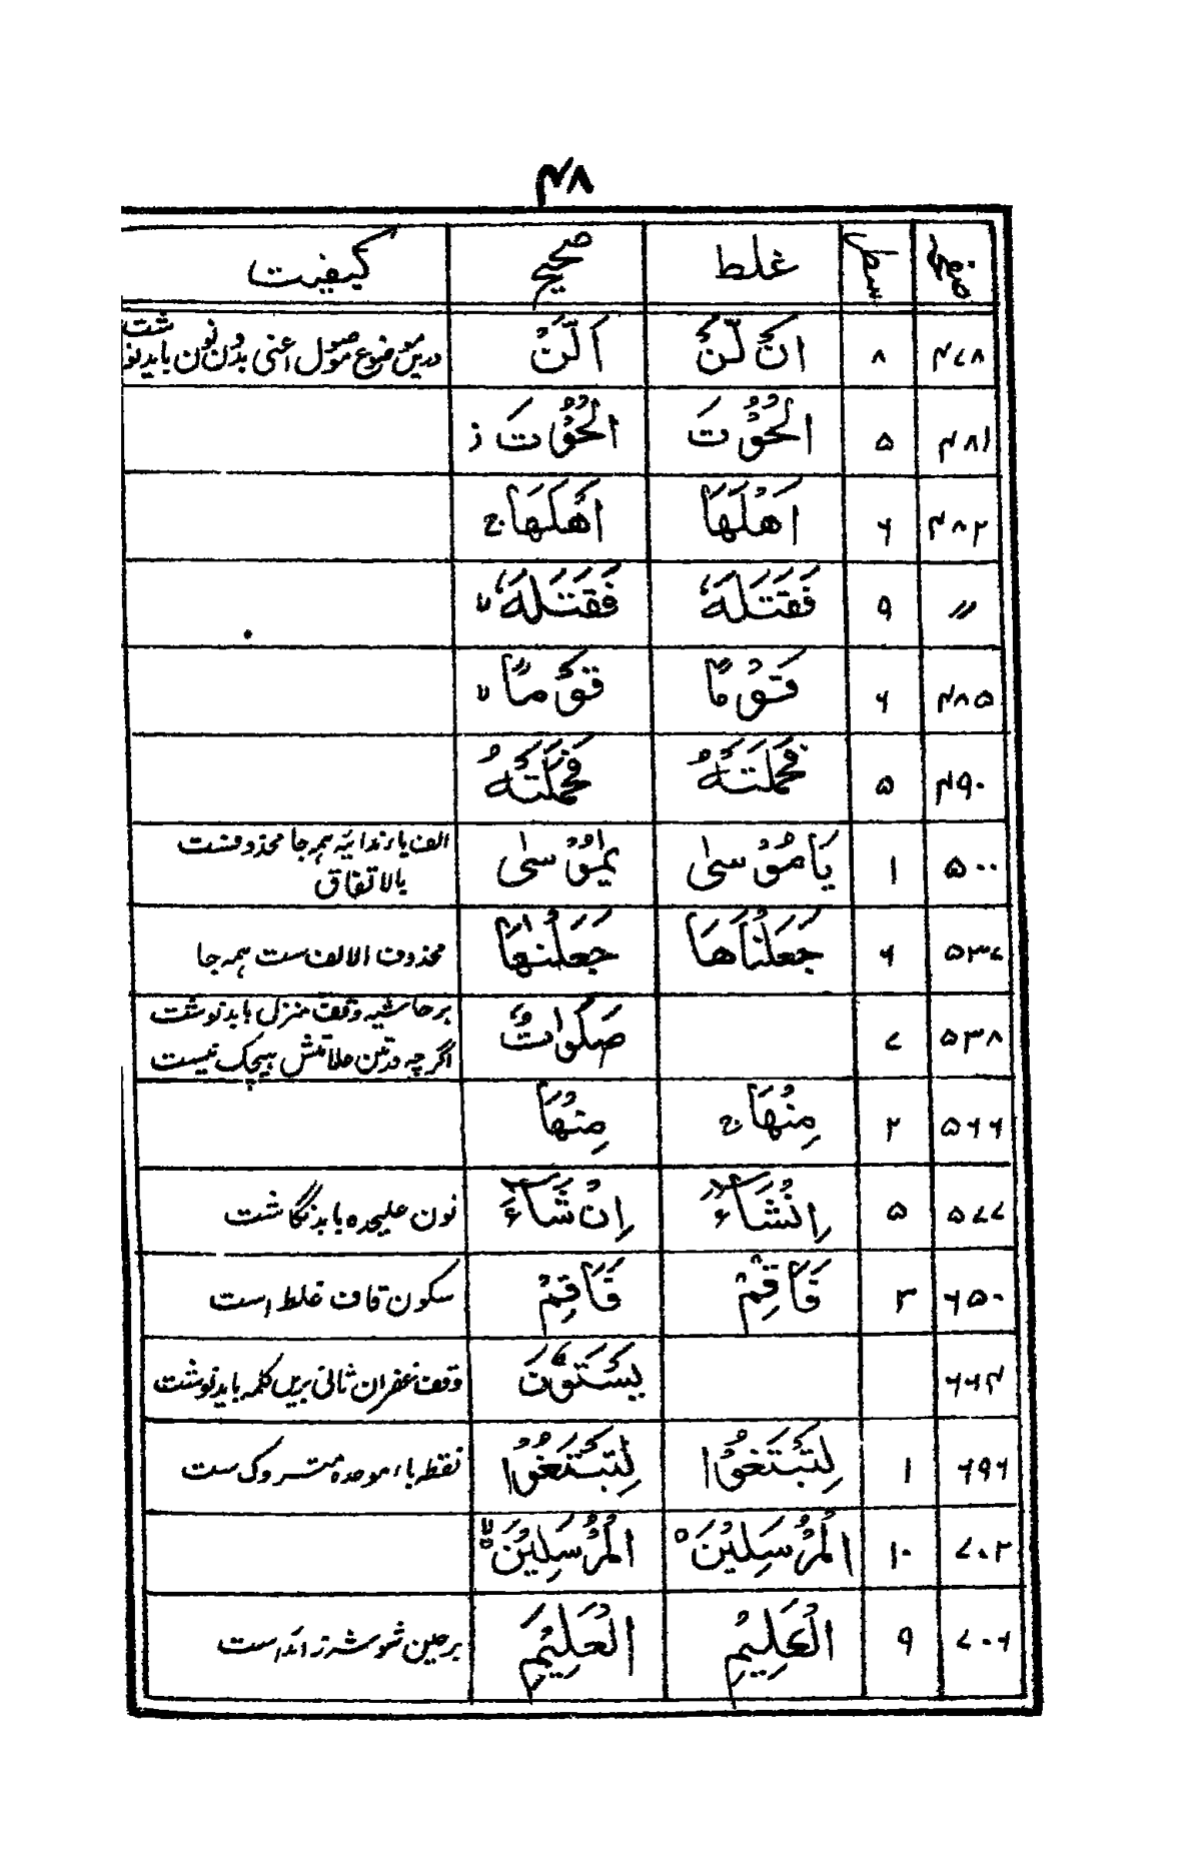 ۴۸
صفحہ سطر غلط صحیح کیفیت
۴۷۸ ۸ اَنْ لَّنْ اَلَّنْ دریں موضوع موصول اعنی بدون نون باید نوشت
۴۸۱ ۵ الْحُوْتَ الْحُوْتَ ز
۴۸۲ ۶ اَهْلَهَا اَهْلَهَا ج
〃 ۹ فَقَتَلَهٗ فَقَتَلَهٗ لا
۴۸۵ ۶ قَوْمًا قَوْمًا لا
۴۹۰ ۵ فَحَمَلَتْهُ فَحَمَلَتْهُ
۵۰۰ ۱ يَامُوْسٰى يٰمُوْسٰى الف یاء ندائیہ ہمہ جا محذوفست
بالاتفاق
۵۳۷ ۶ جَعَلْنَاهَا جَعَلْنٰهَا محذوف الالف ست ہمہ جا
۵۳۸ ۷ صَلَوٰاتٌ بر حاشیہ وقف منزل باید نوشت
اگرچہ درتین علامتش ہیچک نیست
۵۶۶ ۲ مِنْهَا ج مِنْهَا
۵۷۷ ۵ اِنْشَآءَ اِنْ شَآءَ نون علیحدہ باید نگاشت
۶۵۰ ۳ فَاَقِْمْ فَاَقِمْ سکون قاف غلط است
۶۶۴ يَسْتَوٗنَ وقف غفران ثانی بریں کلمہ باید نوشت
۶۹۶ ۱ لِتَبْتَغُوْا لِتَبْتَغُوْا نقطہ باء موحدہ متروک ست
۷۰۲ ۱۰ الْمُرْسَلِيْنَ ه الْمُرْسَلِيْنَ لا
۷۰۶ ۹ الْعَلِيْمِ الْعَلِيْمِ برعین شوشہ زائد است